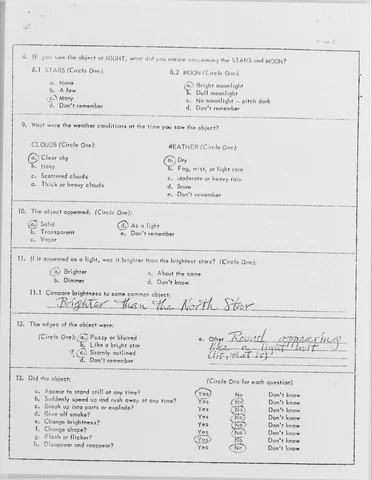 Page 2
8. IF you saw the object at NIGHT, what did you notice concerning the STARS and MOON?
8.1 STARS (Circle One): 8.2 MOON (Circle One):
a. None a. Bright moonlight
b. A few b. Dull moonlight
c. Many c. No moonlight — pitch dark
d. Don't remember d. Don't remember
9. What were the weather conditions at the time you saw the object?
CLOUDS (Circle One): WEATHER (Circle One):
a. Clear sky a. Dry
b. Hazy b. Fog, mist, or light rain
c. Scattered clouds c. Moderate or heavy rain
d. Thick or heavy clouds d. Snow
e. Don't remember
10. The object appeared: (Circle One):
a. Solid d. As a light
b. Transparent e. Don't remember
c. Vapor
11. If it appeared as a light, was it brighter than the brightest stars? (Circle One):
a. Brighter c. About the same
b. Dimmer d. Don't know
11.1 Compare brightness to some common object:
Brighter than the North Star
12. The edges of the object were:
(Circle One): a. Fuzzy or blurred e. Other Round appearing
b. Like a bright star like a light
? c. Sharply outlined (lit, that is)
d. Don't remember
13. Did the object: (Circle One for each question)
a. Appear to stand still at any time? Yes No Don't know
b. Suddenly speed up and rush away at any time? Yes No Don't know
c. Break up into parts or explode? Yes No Don't know
d. Give off smoke? Yes No Don't know
e. Change brightness? Yes No Don't know
f. Change shape? Yes No Don't know
g. Flash or flicker? Yes No Don't know
h. Disappear and reappear? Yes No Don't know